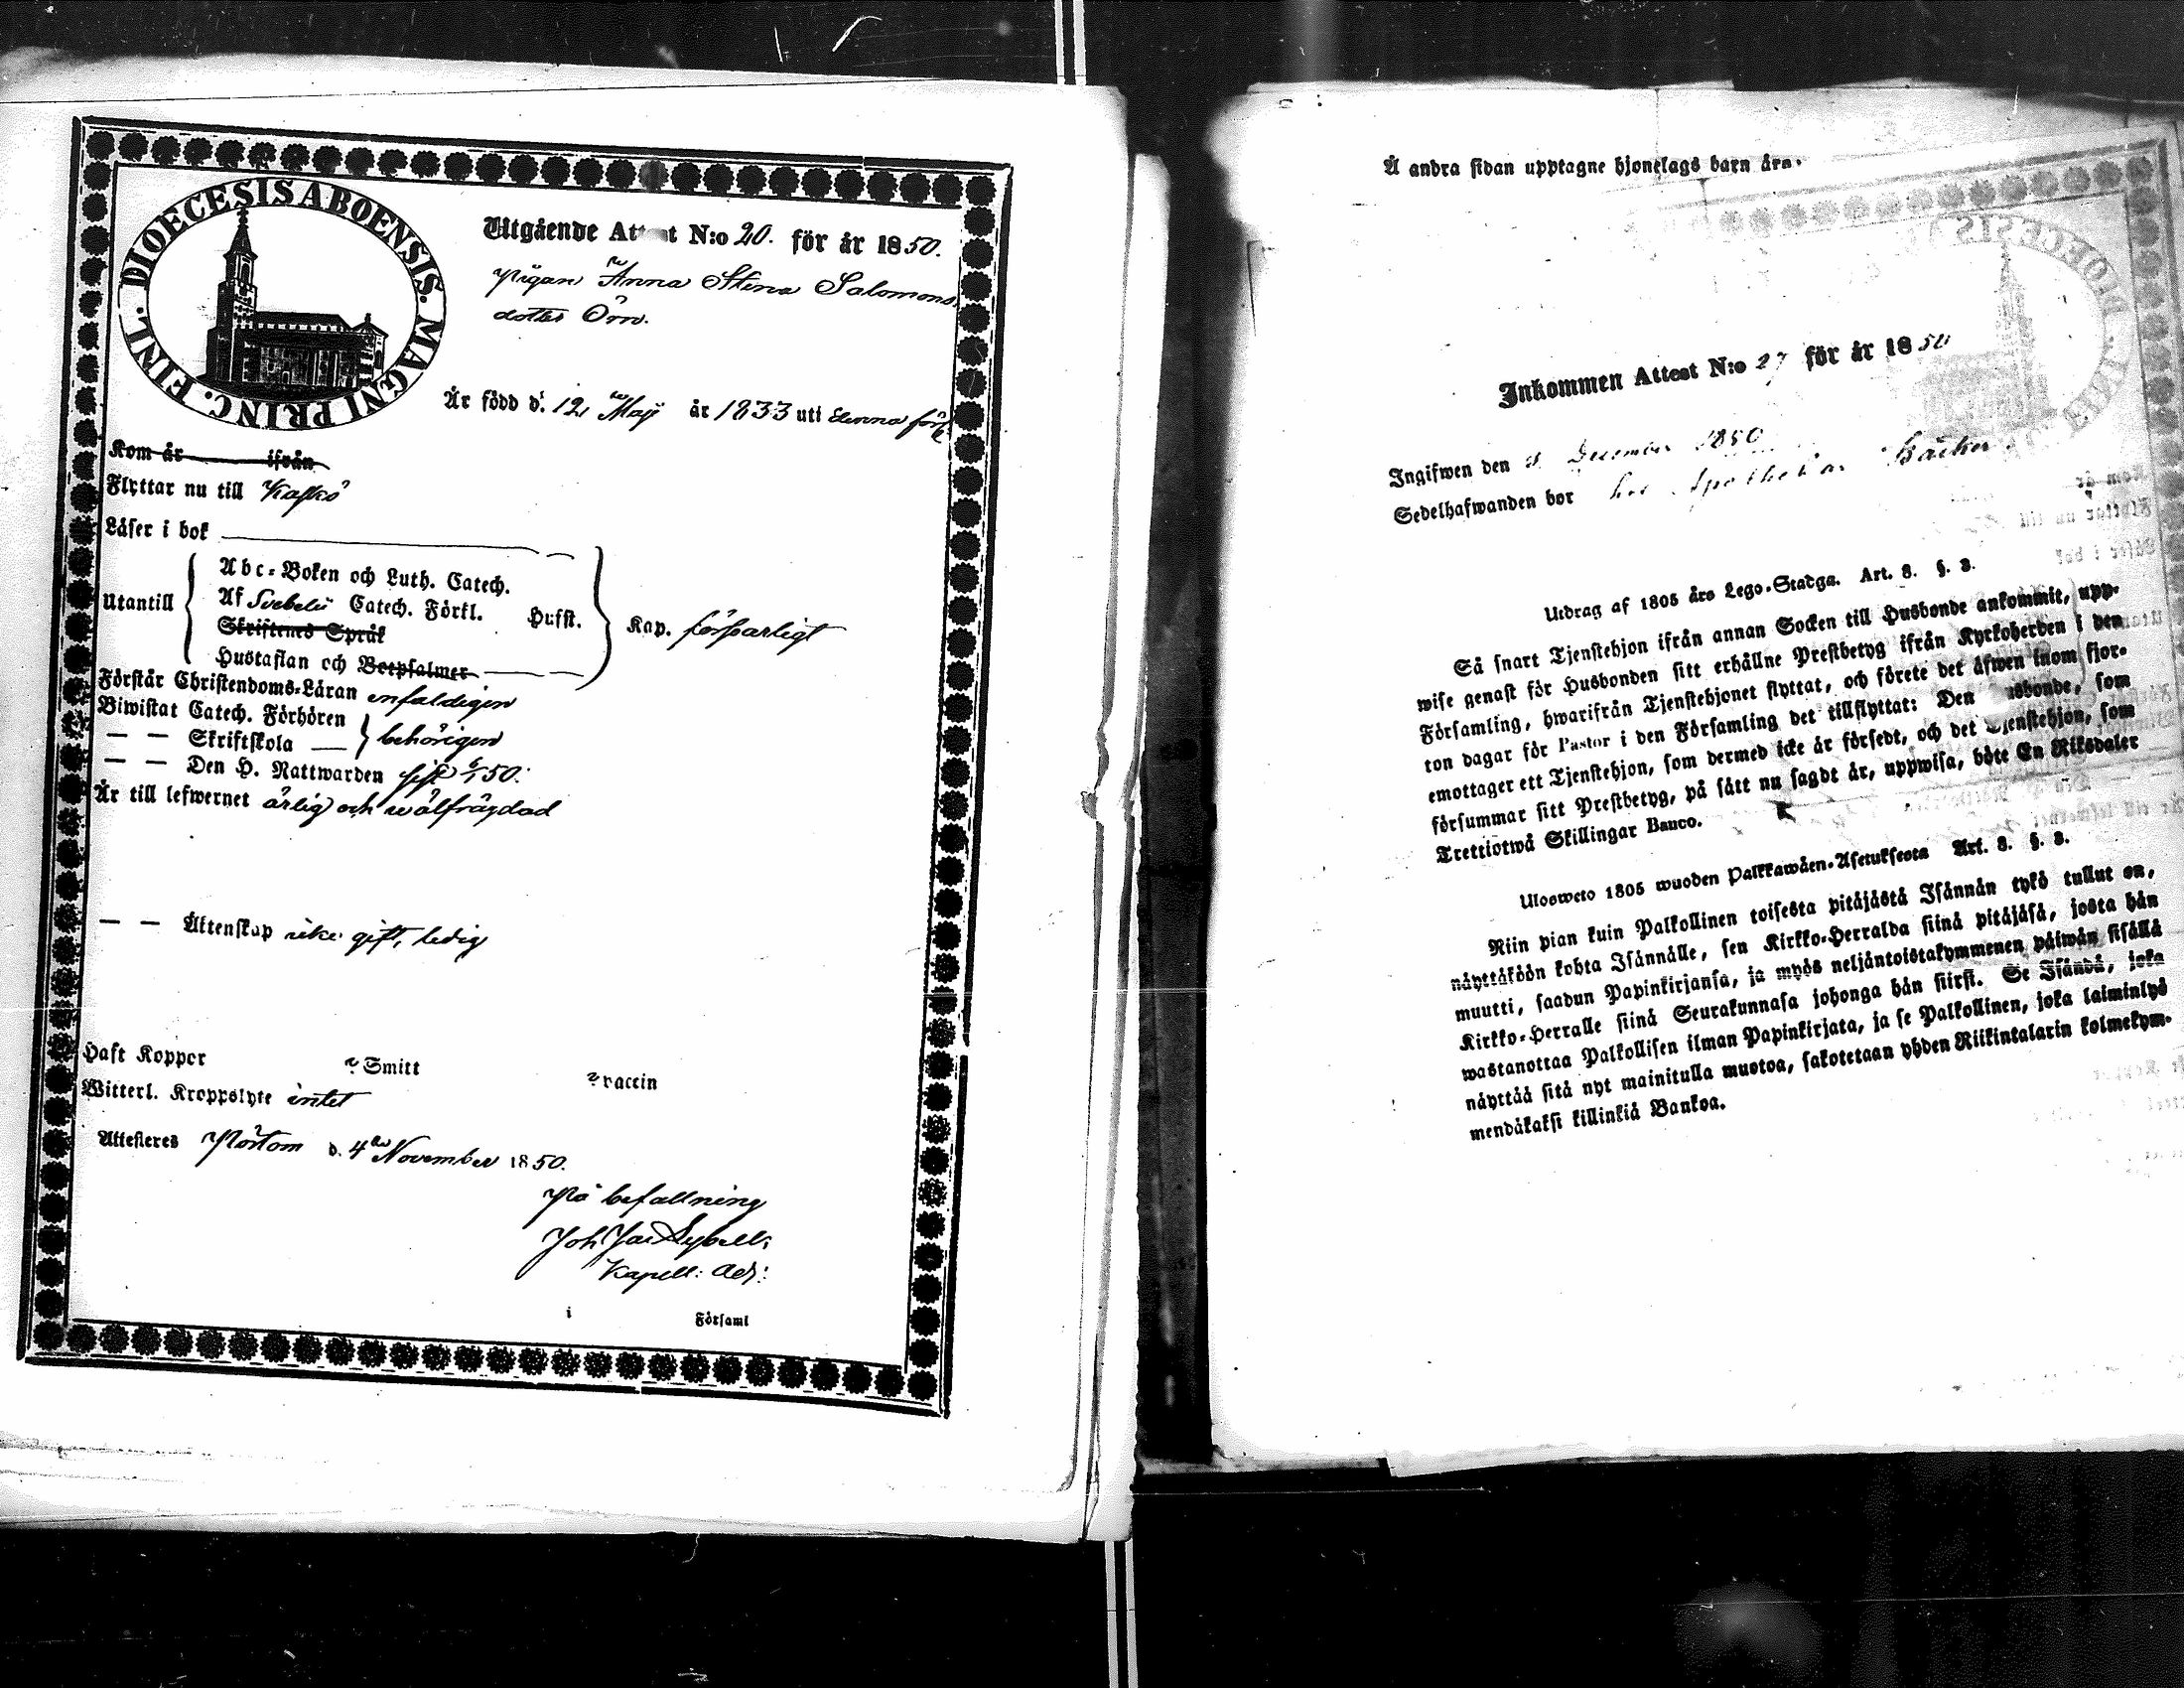 DIOECESIS ABOENSIS. MAGNI PRINC. FINL.
Utgående Attest N:o 20. för år 1850.
Pigan Anna Stina Salomons
dotter Örn.
Är född d. 12 Maji år 1833 uti denna förs.
Kom år ifrån
Flyttar nu till Kaskö
Läser i bok
Utantill
Abc-Boken och Luth. Catech.
Af Svebelii Catech. Förkl. Hufst.
Kap. försvarligt
Skriftenes Språk
Hustaflan och Botpsalmer
Förstår Christendoms-Läran enfaldigen
Biwistat Catech. Förhören
— — Skriftskola — behörigen
— — Den H. Nattwarden sist 50.
Är till lefwernet ärlig och wälfrägdad
— — Äktenskap icke gift, ledig
Haft Koppor
Smitt
vaccin
Witterl. Kroppslyte intet
Attesteres Pörtom d. 4 November 1850.
På befallning
Joh
Kapell: Adj:
i Församl
Å andra sidan upptagne hjonelags barn äro.
Inkommen Attest N:o 27 för år 1850
Ingifwen den December 1850
Sedelhafwanden bor hos Apothekar Bäcker
Utdrag af 1805 års Lego-Stadga. Art. 3. §. 3.
Så snart Tjenstehjon ifrån annan Socken till Husbonde ankommit, upp-
wise genast för Husbonden sitt erhållne Prestbetyg ifrån Kyrkoherden i den
Församling, hwarifrån Tjenstehjonet flyttat, och förete det äfwen inom fjor-
ton dagar för Pastor i den Församling det tillflyttat: Den Husbonde, som
emottager ett Tjenstehjon, som dermed icke är försedt, och det Tjenstehjon, som
försummar sitt Prestbetyg, på sätt nu sagdt är, uppwisa, böte En Riksdaler
Trettiotwå Skillingar Banco.
Ulosweto 1805 wuoden Palkkawäen-Asetuksesta Art. 3. §. 3.
Niin pian kuin Palkollinen toisesta pitäjästä Isännän tykö tullut on,
näyttäköön kohta Isännälle, sen Kirkko-Herralda siinä pitäjäsä, josta hän
muutti, saadun Papinkirjansa, ja myös neljäntoistakymmenen päiwän sisällä
Kirkko-Herralle siinä Seurakunnasa johonga hän siirsi. Se Isändä, joka
wastanottaa Palkollisen ilman Papinkirjata, ja se Palkollinen, joka laiminlyö
näyttää sitä nyt mainitulla muotoa, sakotetaan yhden Riikintalarin kolmekym-
mendäkaksi killinkiä Bankoa.